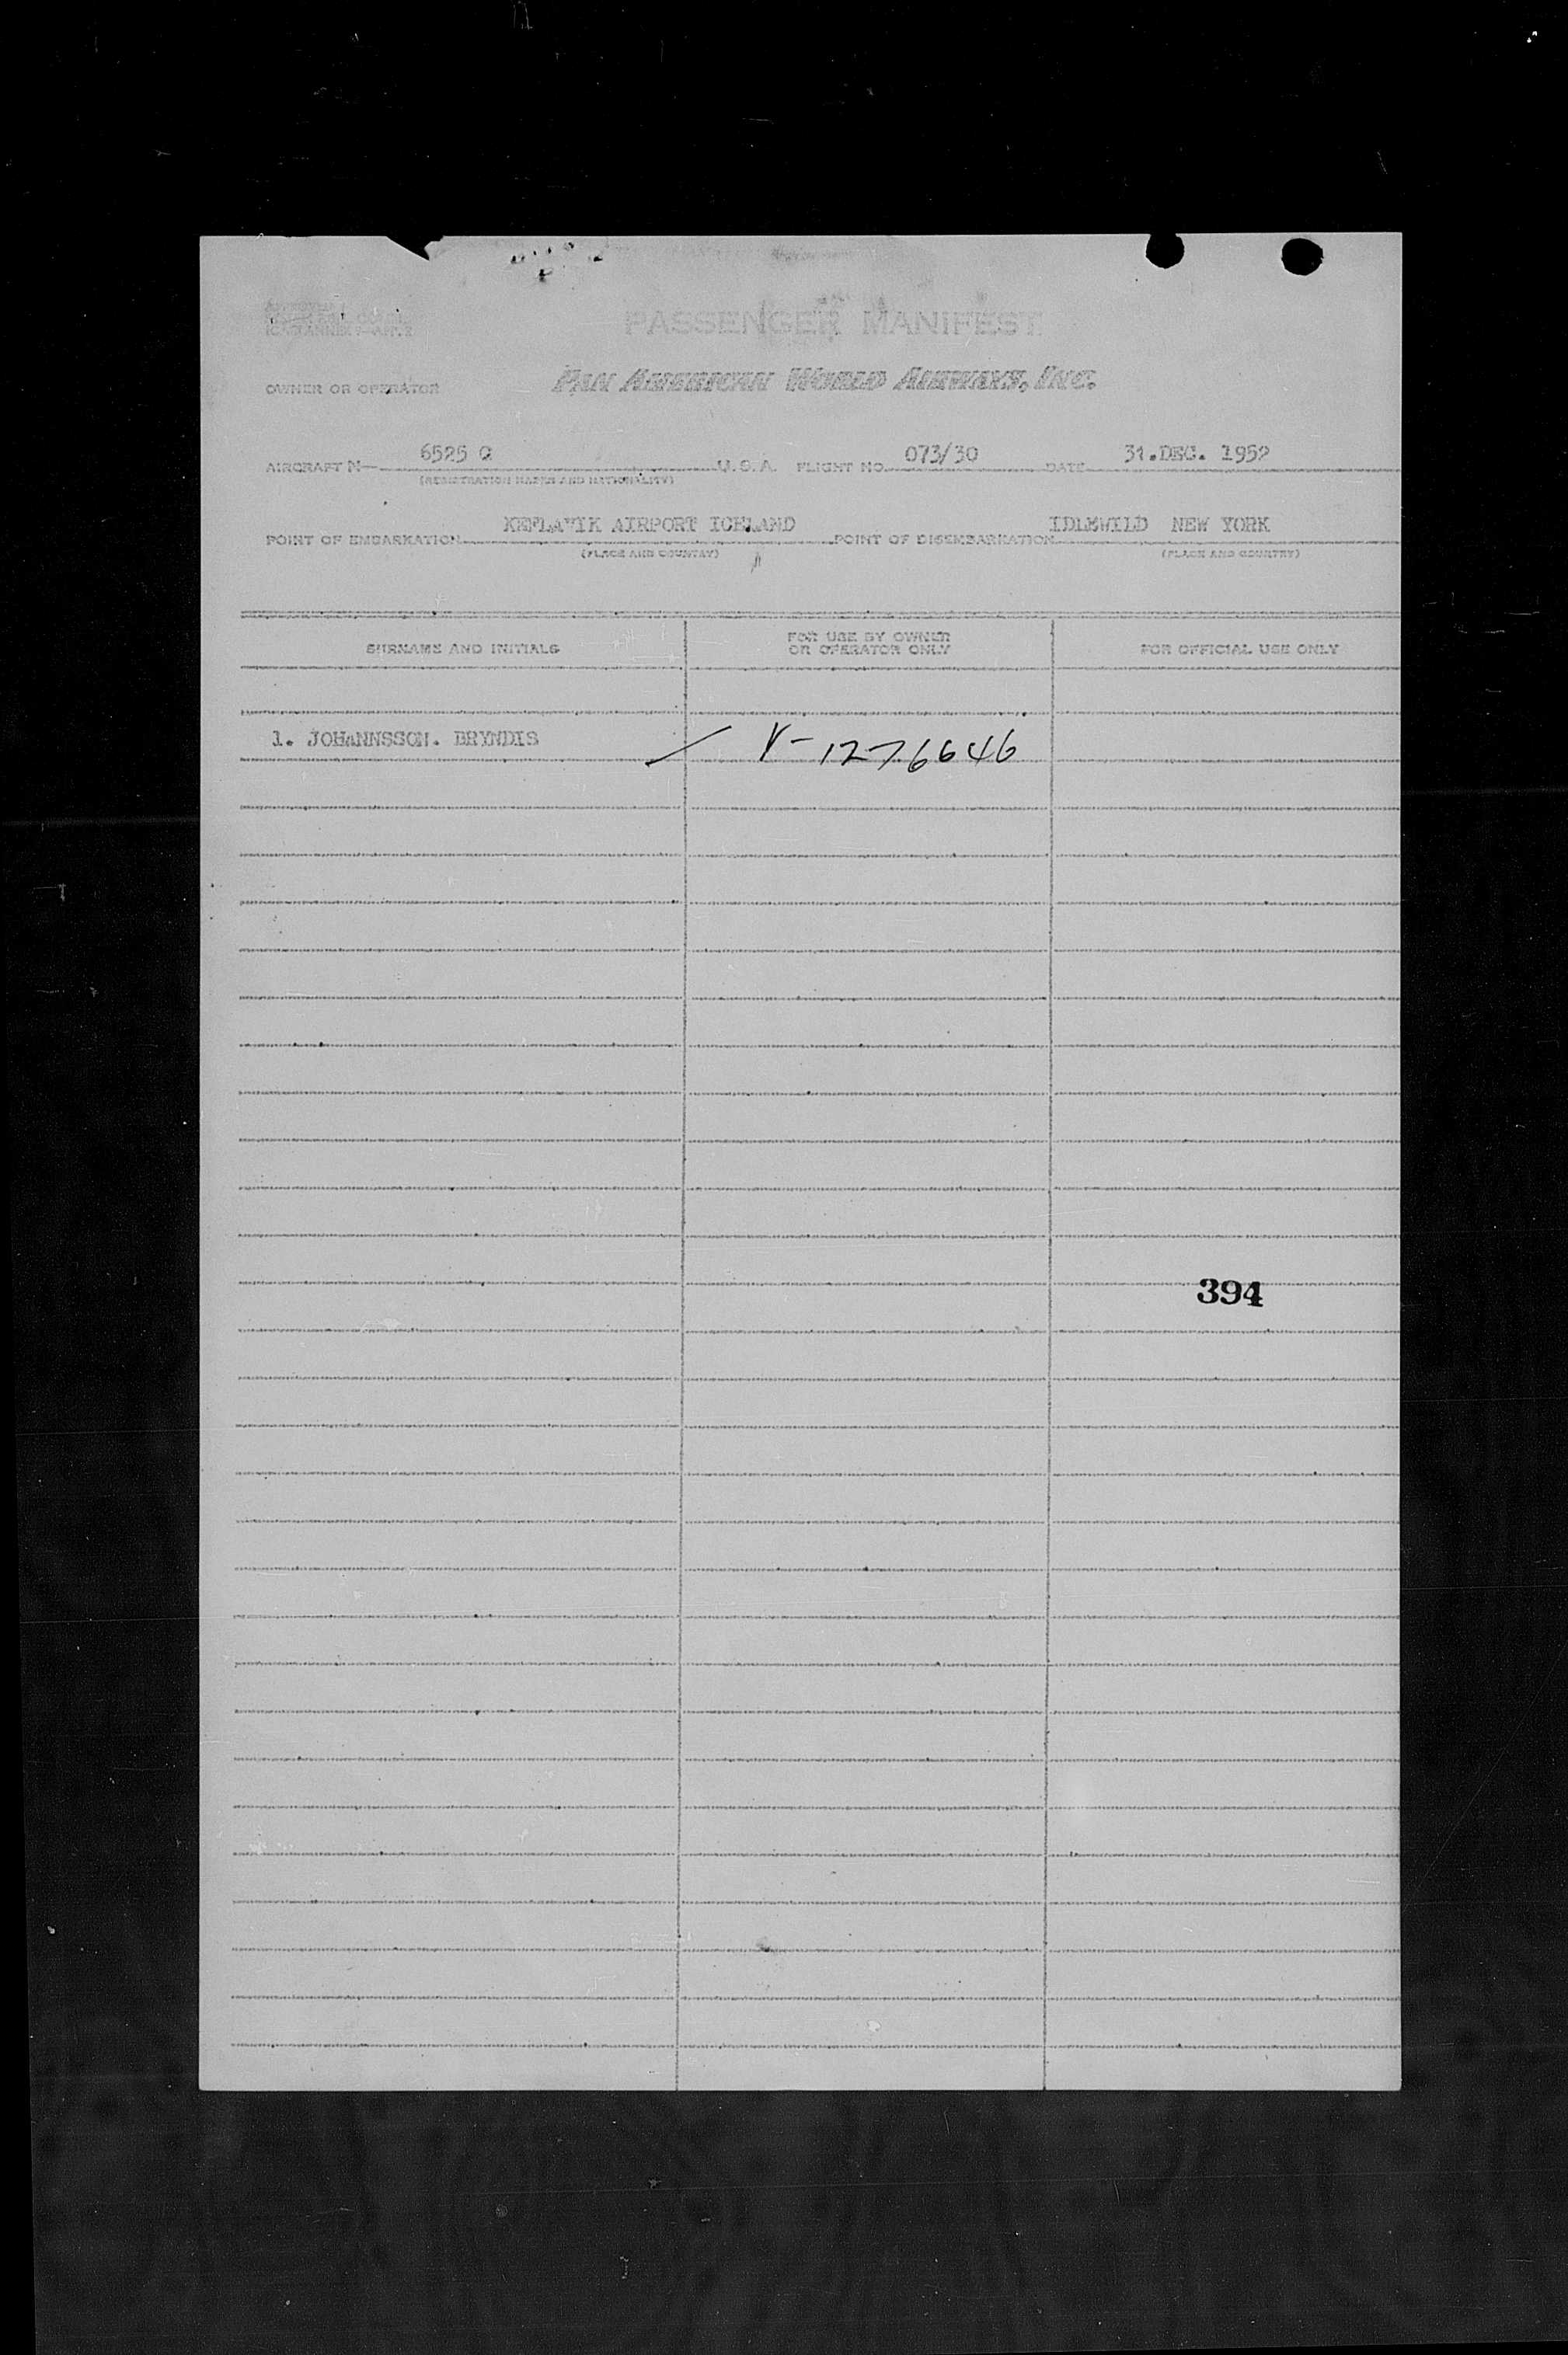 PASSENGER MANIFEST
OWNER OR OPERATOR PAN AMERICAN WORLD AIRWAYS, INC.
AIRCRAFT N— 6525 Q U.S.A. FLIGHT NO. 073/30 DATE 31.DEC. 1952
(REGISTRATION MARKS AND NATIONALITY)
POINT OF EMBARKATION KEFLAVIK AIRPORT ICELAND POINT OF DISEMBARKATION IDLEWILD NEW YORK
(PLACE AND COUNTRY) (PLACE AND COUNTRY)
SURNAME AND INITIALS
FOR USE BY OWNER
OR OPERATOR ONLY
FOR OFFICIAL USE ONLY
1. JOHANNSSON. BRYNDIS V-1276646
394